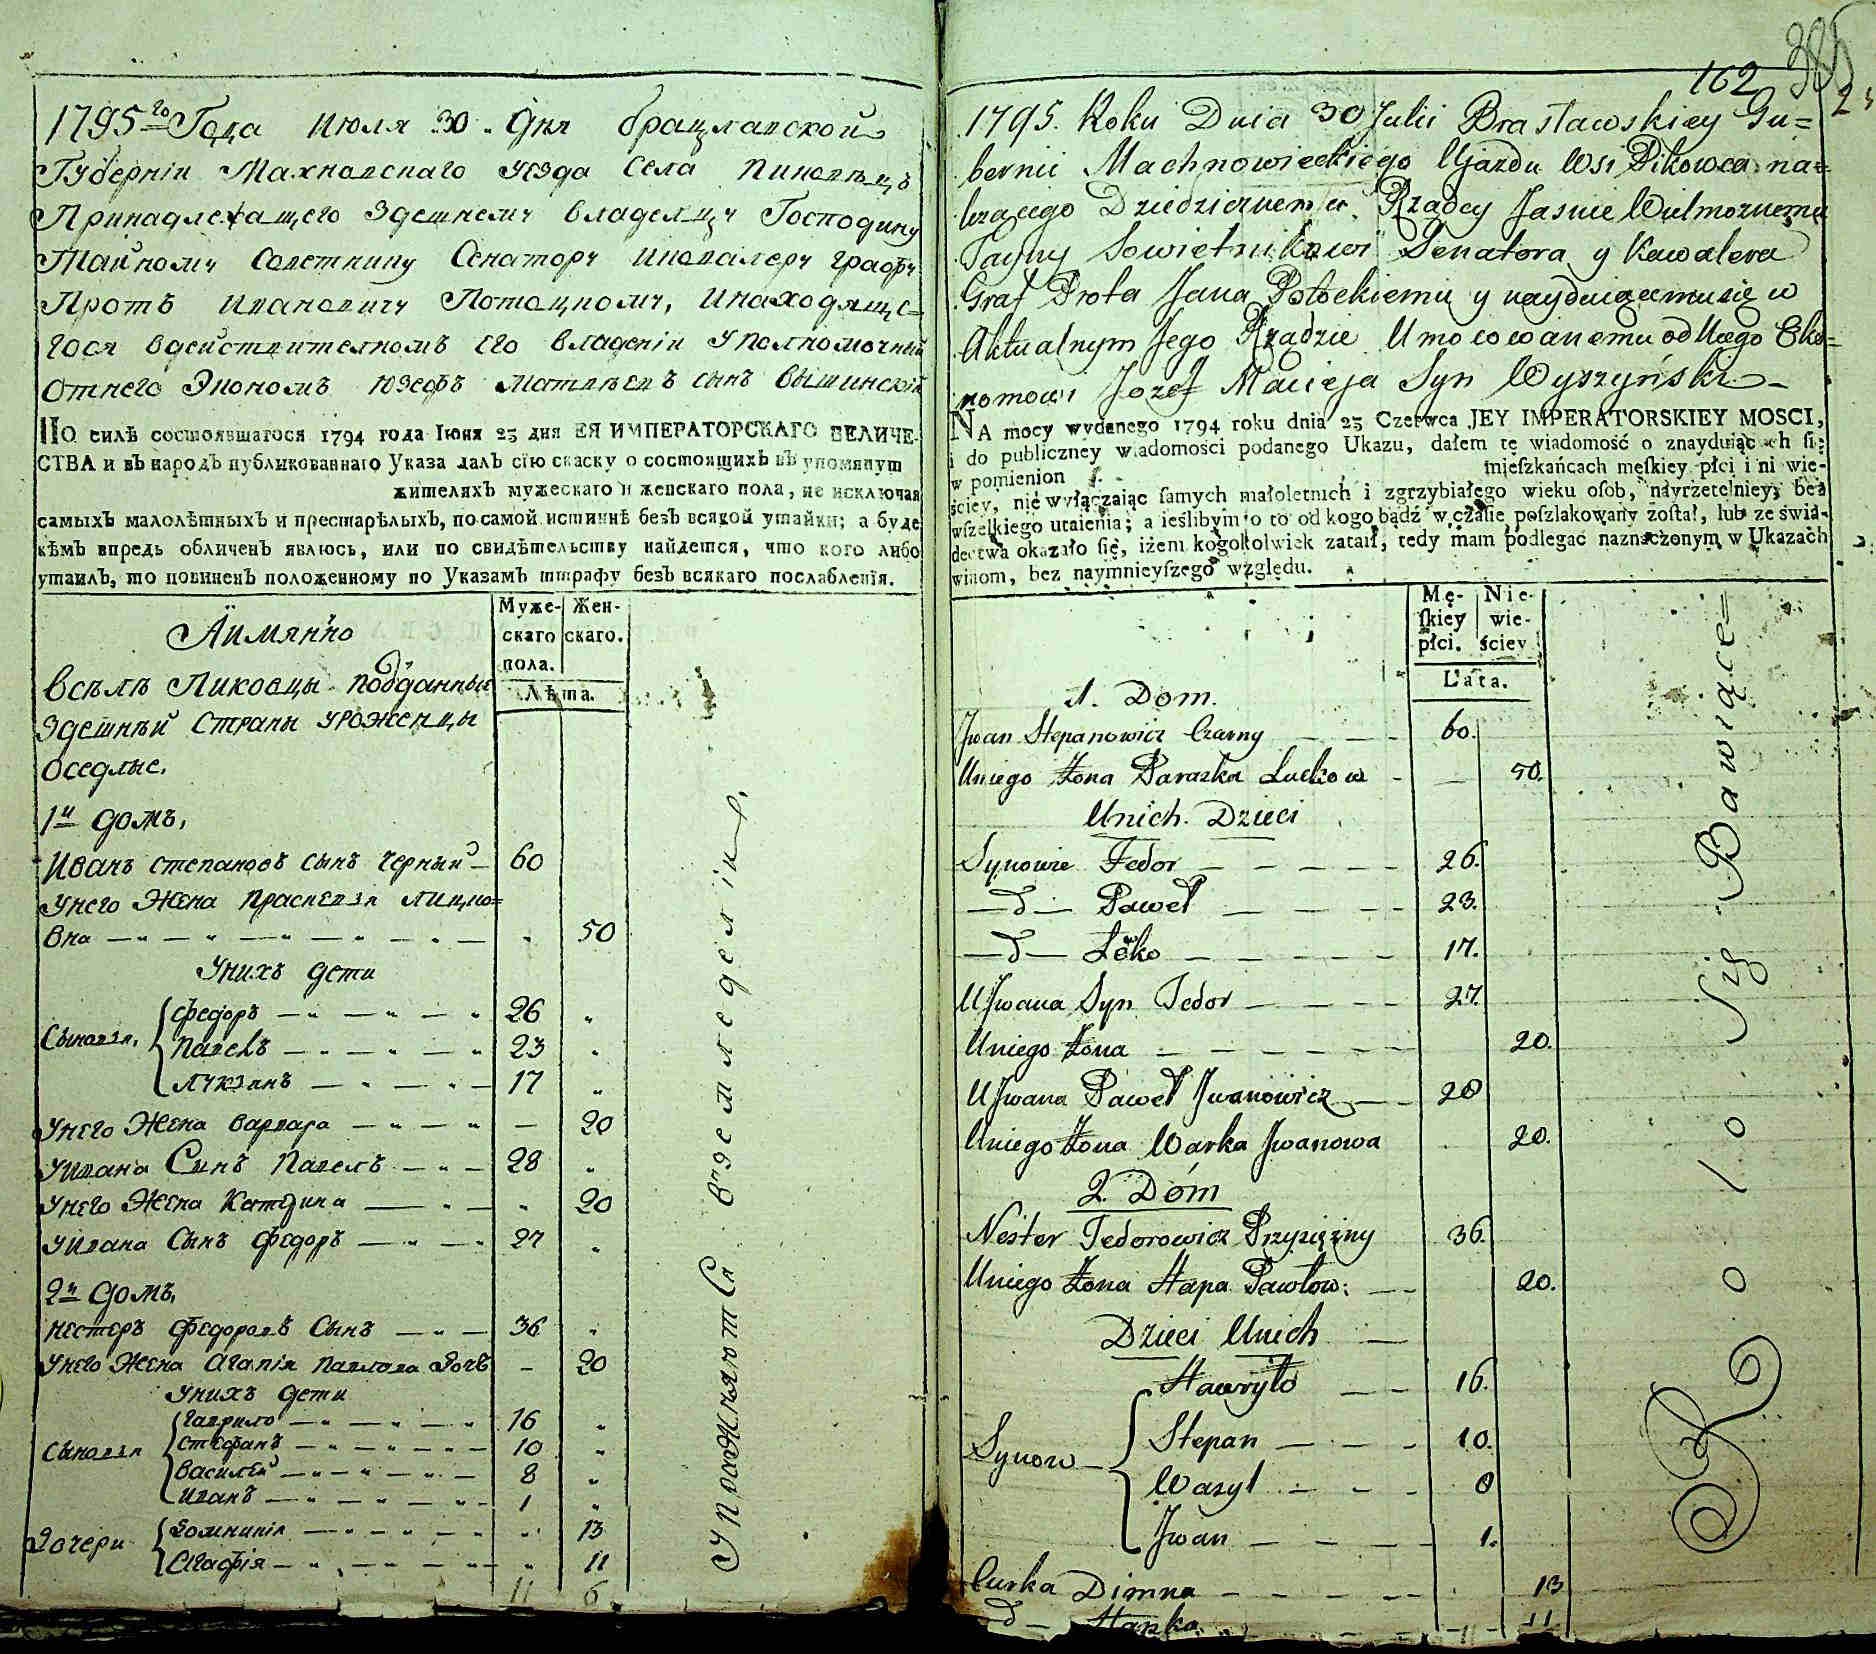 1795го Года июля 30. Дня брацлавской
Губерніи Махновскаго уезда Села Пиковецъ
Принадлежащего здешнему владелцу Господину
Тайному Советнику Сенатору и кавалеру графу
Протъ Ивановичу Потоцкому, и находяще-
гося в действителномъ его владеніи уполномочный
от него Экономъ Юзефъ Матвеевъ сынъ Вышинский
ПО силѣ состоявшагося 1794 года Іюня 23 дня ЕЯ ИМПЕРАТОРСКАГО ВЕЛИЧЕ-
СТВА и въ народъ публикованнаго Указа далъ сію скаску о состоящихъ въ упомянут
жителяхъ мужескаго и женскаго пола, не исключая
самыхъ малолѣтныхъ и престарѣлыхъ, по самой истиннѣ безъ всякой утайки; а буде
кѣмъ впредь обличенъ явлюсь, или по свидѣтельству найдется, что кого либо
утаилъ, то повиненъ положенному по Указамъ штрафу безъ всякаго послабленія.
Муже- Жен-
скаго скаго.
пола.
Лѣта.
Аимянно
Всѣлѣ Пиковцы подданные
здешнѣй страны уроженцы
оседлые.
1й домъ,
Иванъ степановъ сынъ черный — 60
У него Жена Прасковья Лицко-
вна — " — " — " — " — 50
У нихъ дети
Сыновья,
федоръ — " — " — " 26 "
Павелъ — " — " — " 23 "
Лукьянъ — " — " — 17 "
У него Жена варвара — " — " — 20
У Ивана Сынъ Павелъ — " — 28 "
У него Жена Катерина — " — " 20
У Ивана Сынъ федоръ — " — 27 "
2й домъ,
нестеръ федоровъ Сынъ — " — 36 "
У него Жена Агапія павлова Дочь — 20
У нихъ дети
Сыновья
гаврило — " — " — " 16 "
стефанъ — " — " — " 10 "
василей — " — " — " 8 "
Иванъ — " — " — " 1 "
Дочери
Домникія — " — " — " 13
Агафія — " — " — " 11
11 6
Упражняются в земледеліи,
162
385
1795. Roku Dnia 30 Julii Bracławskiey Gu=
bernii Machnowieckiego Ujazdu Wsi Pikowca na=
leżącego Dziedzicznemu Rządcy Jasnie Wielmożnemu
Tayny Sowietnikowi Senatora y Kawalera
Graf Prota Jana Potockiemu y nayduiącemu się w
Aktualnym Jego Rządzie Umocowanemu od Niego Eko=
nomowi Jozef Macieja Syn Wyszyński —
NA mocy wydanego 1794 roku dnia 23 Czerwca JEY IMPERATORSKIEY MOSCI,
i do publiczney wiadomości podanego Ukazu, dałem tę wiadomość o znayduiących ſię
w pomienion mieſzkańcach męſkiey płci i ni wie-
ściey, nie wyłączaiąc ſamych małoletnich i zgrzybiałego wieku oſob, nayrzetelniey, bez
wſzelkiego utaienia; a ieślibym o to od kogo bądź w czaſie poſzlakowany zoſtał, lub ze świa-
dectwa okazało ſię, iżem kogokolwiek zataił, tedy mam podlegać naznaczonym w Ukazach
winom, bez naymnieyſzego względu.
Mę- Nie-
ſkiey wie-
płci. ściey
Lata.
1. Dom.
Jwan Stepanowicz Czarny — — — 60.
U niego Żona Paraska Luckow — — 50.
U nich Dzieci
Synowie Fedor — — — — 26.
— d — Paweł — — — — 23.
— d — Lećko — — — — 17.
U Jwana Syn Fedor — — — — 27.
U niego Żona — — — — — 20.
U Jwana Paweł Jwanowicz — — 28
U niego Żona Warka Jwanowa 20.
2. Dóm
Nester Fedorowicz Przysiężny 36.
U niego Żona Hapa Pawłow: — — 20.
Dzieci U nich —
Synow —
Hawryło — — 16.
Stepan — — — 10.
Wasyl — — — 8
Jwan — — — — 1.
Curka Dimna — — — — — 13
— d — Hapka — — — — 11.
Rolo Się Bawiące=